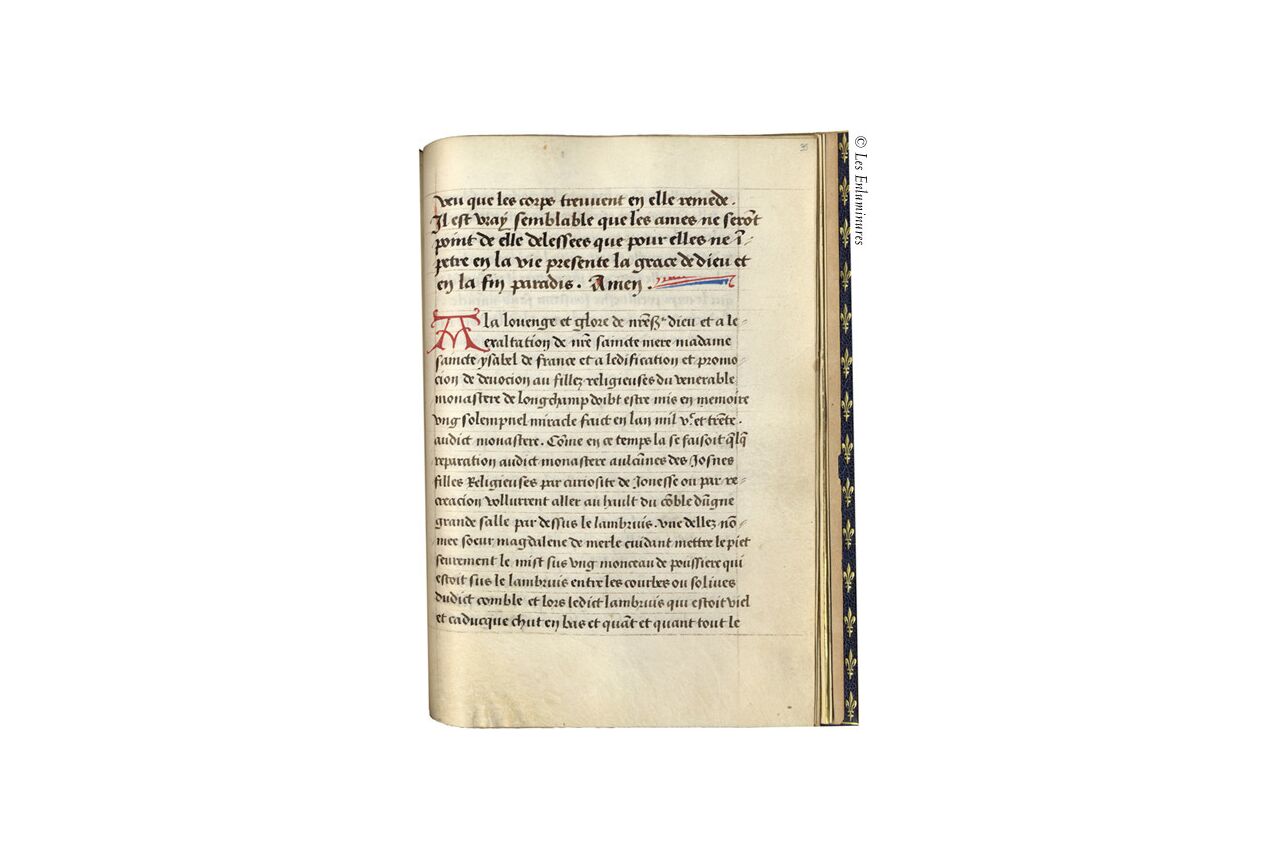 35
veu que les corps treuuent en elle remede .
Il est vray semblable que les ames ne serõt
point de elle delessees que pour elles ne ĩ-
petre en la vie presente la grace de dieu et
en la fin paradis . Amen .
A la louenge et glore de nr̃e dieu et a le-
exaltation de nr̃e saincte mere madame
saincte ysabel de france et a ledification et promo
cion de deuocion au fillez religieuses du venerable
monastere de longchamp doibt estre mis en memoire
vng solempnel miracle faict en lan mil vᶜ et trẽte .
audict monastere . Cõme en ce temps la se faisoit q̃lq̃
reparation audict monastere aulcũnes des Josnes
filles Religieuses par curiosite de Jonesse ou par re-
creacion vollurrent aller au hault du cõble dũgne
grande salle par dessus le lambruis . vne dellez nõ-
mee soeur magdalene de merle cuidant mettre le piet
seurement le mist sus vng monceau de poussiere qui
estoit sus le lambruis entre les courbes ou soliues
dudict comble et lors ledict lambruis qui estoit viel
et caducque chut en bas et quãt et quant tout le
© Les Enluminures